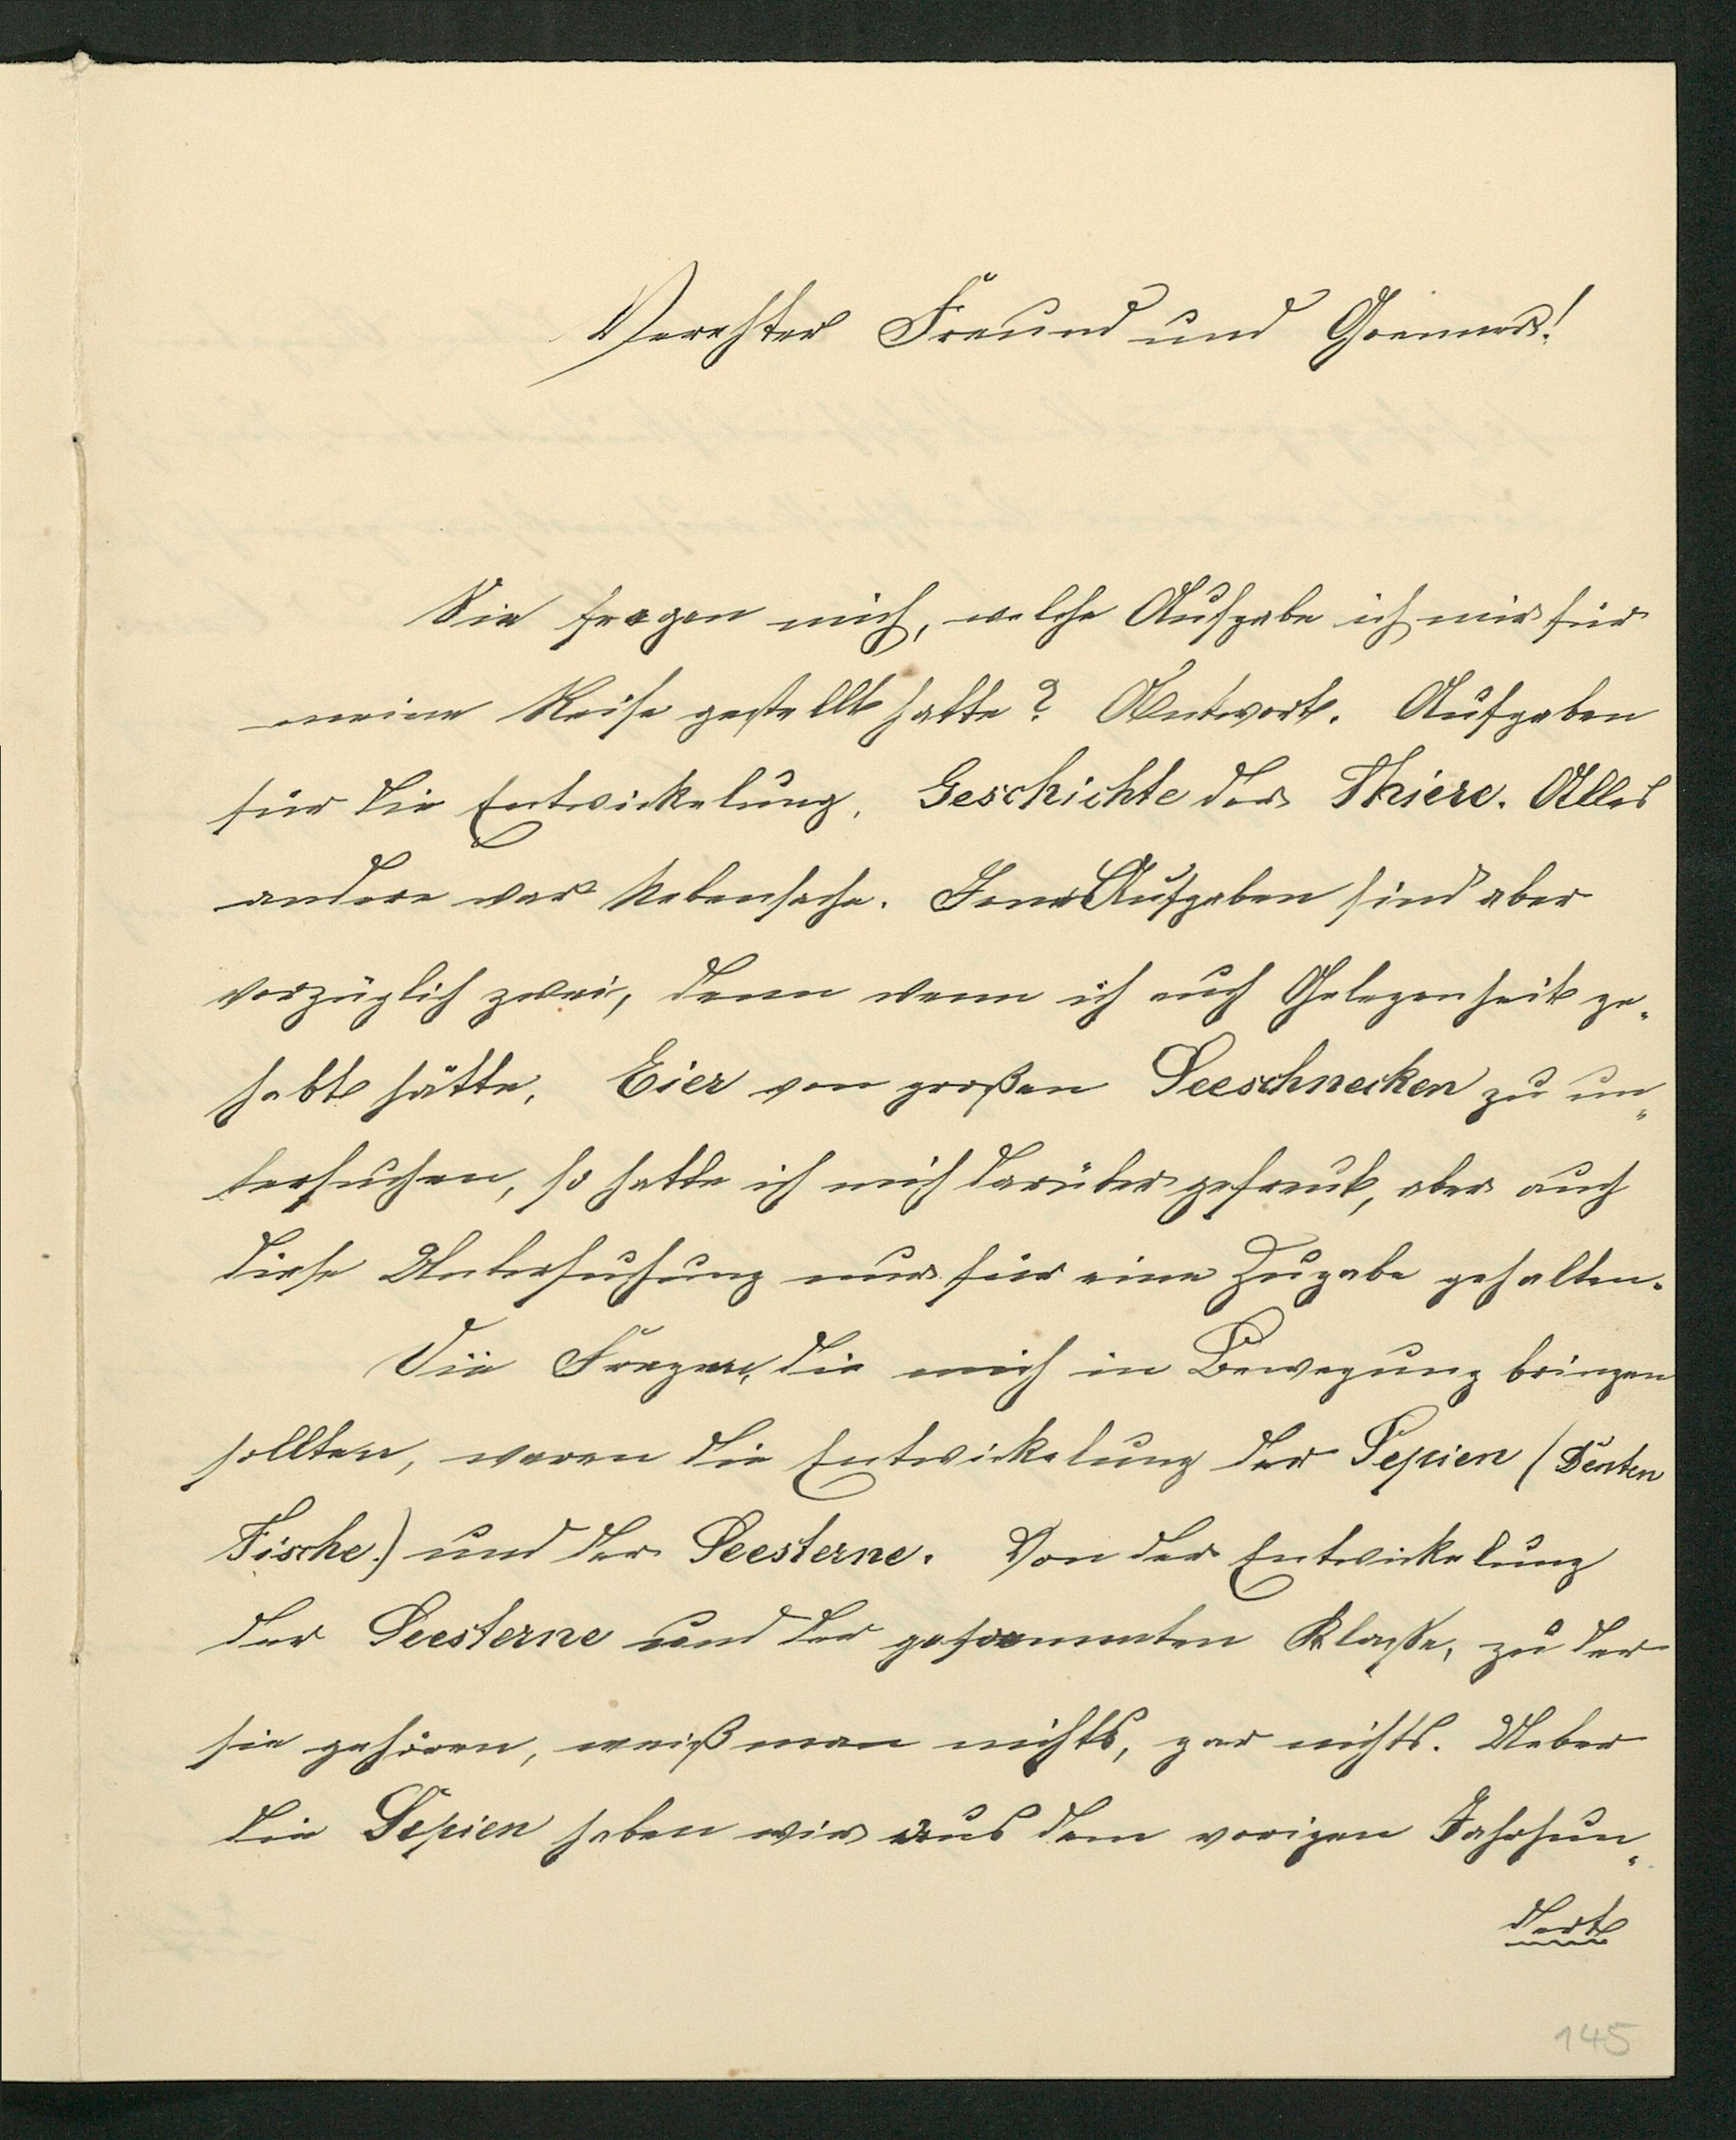 Verehrter Freund und Goenner!
Sie fragen mich, welche Aufgabe ich mir für
meine Reise gestellt hatte? Antwort. Aufgaben
für die Entwickelung. Geschichte der Thiere. Alles
andere war Nebensache. Jene Aufgaben sind aber
vorzüglich zwei, denn wenn ich auch Gelegenheit ge„
habt hätte, Eier von großen Seeschnecken zu un„
tersuchen, so hatte ich mich darüber gefreut, aber auch
diese Untersuchung nur für eine Zugabe gehalten.
Die Fragen, die mich in Bewegung bringen
sollten, waren die Entwickelung der Sepien (Denten
Fische.) und der Seesterne. Von der Entwickelung
der Seesterne und der gesammten Klasse, zu der
sie gehören, weiß man nichts, gar nichts. Ueber
die Sepien haben wir aus dem vorigen Jahrhun„
dert
145